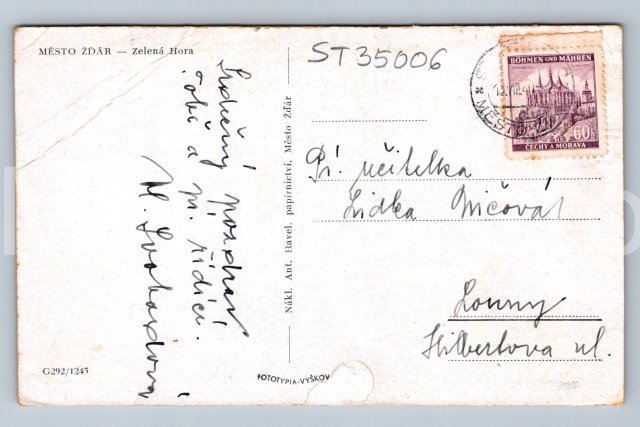 MĚSTO ŽĎÁR — Zelená Hora
ST35006
BÖHMEN UND MÄHREN
60
ČECHY A MORAVA
MĚSTO
Srdečný pozdrav
pí. řídící.
M. Svobodová
Nákl. Ant. Havel, papírnictví, Město Žďár
Pí. učitelka
Lidka
Louny
Hilbertova ul.
G292/1245
FOTOTYPIA-VYŠKOV